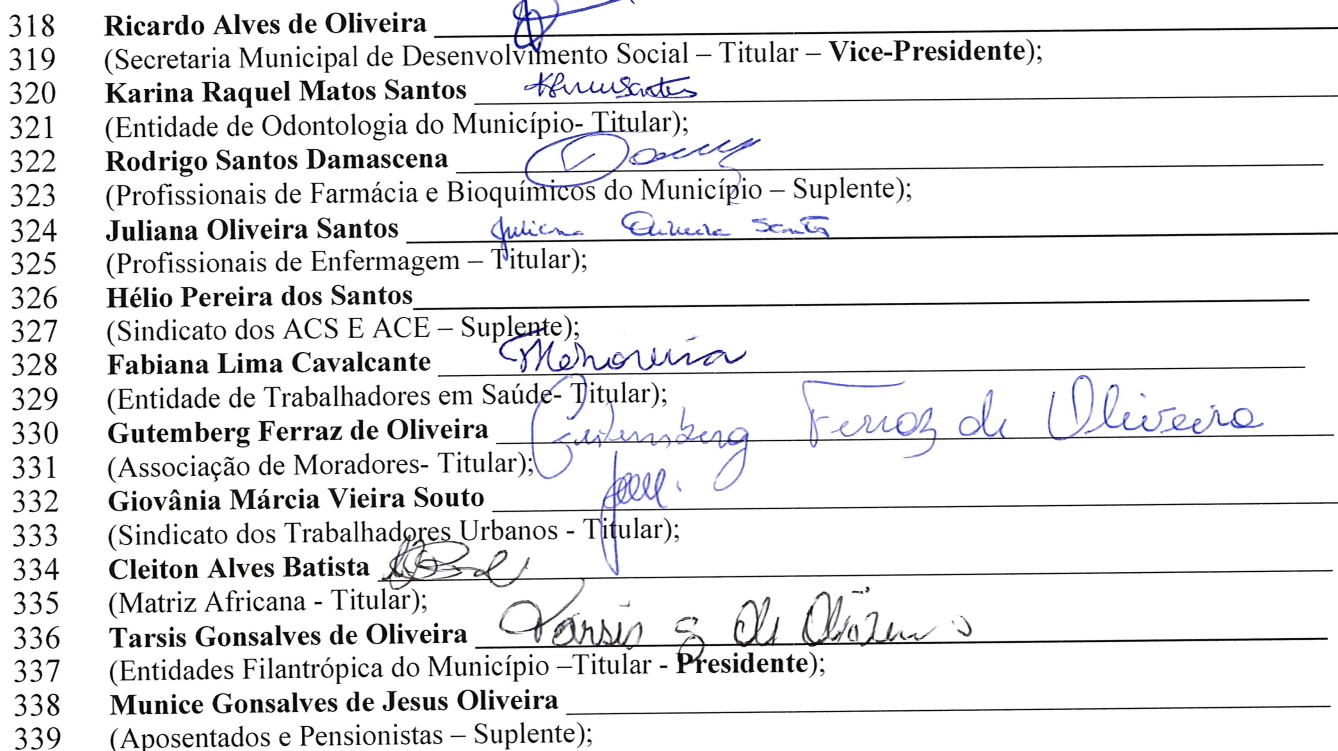 318 Ricardo Alves de Oliveira
319 (Secretaria Municipal de Desenvolvimento Social – Titular – Vice-Presidente);
320 Karina Raquel Matos Santos
321 (Entidade de Odontologia do Município- Titular);
322 Rodrigo Santos Damascena
323 (Profissionais de Farmácia e Bioquímicos do Município – Suplente);
324 Juliana Oliveira Santos Juliana Oliveira Santos
325 (Profissionais de Enfermagem – Titular);
326 Hélio Pereira dos Santos
327 (Sindicato dos ACS E ACE – Suplente);
328 Fabiana Lima Cavalcante
329 (Entidade de Trabalhadores em Saúde- Titular);
330 Gutemberg Ferraz de Oliveira Gutemberg Ferraz de Oliveira
331 (Associação de Moradores- Titular);
332 Giovânia Márcia Vieira Souto
333 (Sindicato dos Trabalhadores Urbanos - Titular);
334 Cleiton Alves Batista
335 (Matriz Africana - Titular);
336 Tarsis Gonsalves de Oliveira Tarsis G de Oliveira
337 (Entidades Filantrópica do Município –Titular - Presidente);
338 Munice Gonsalves de Jesus Oliveira
339 (Aposentados e Pensionistas – Suplente);